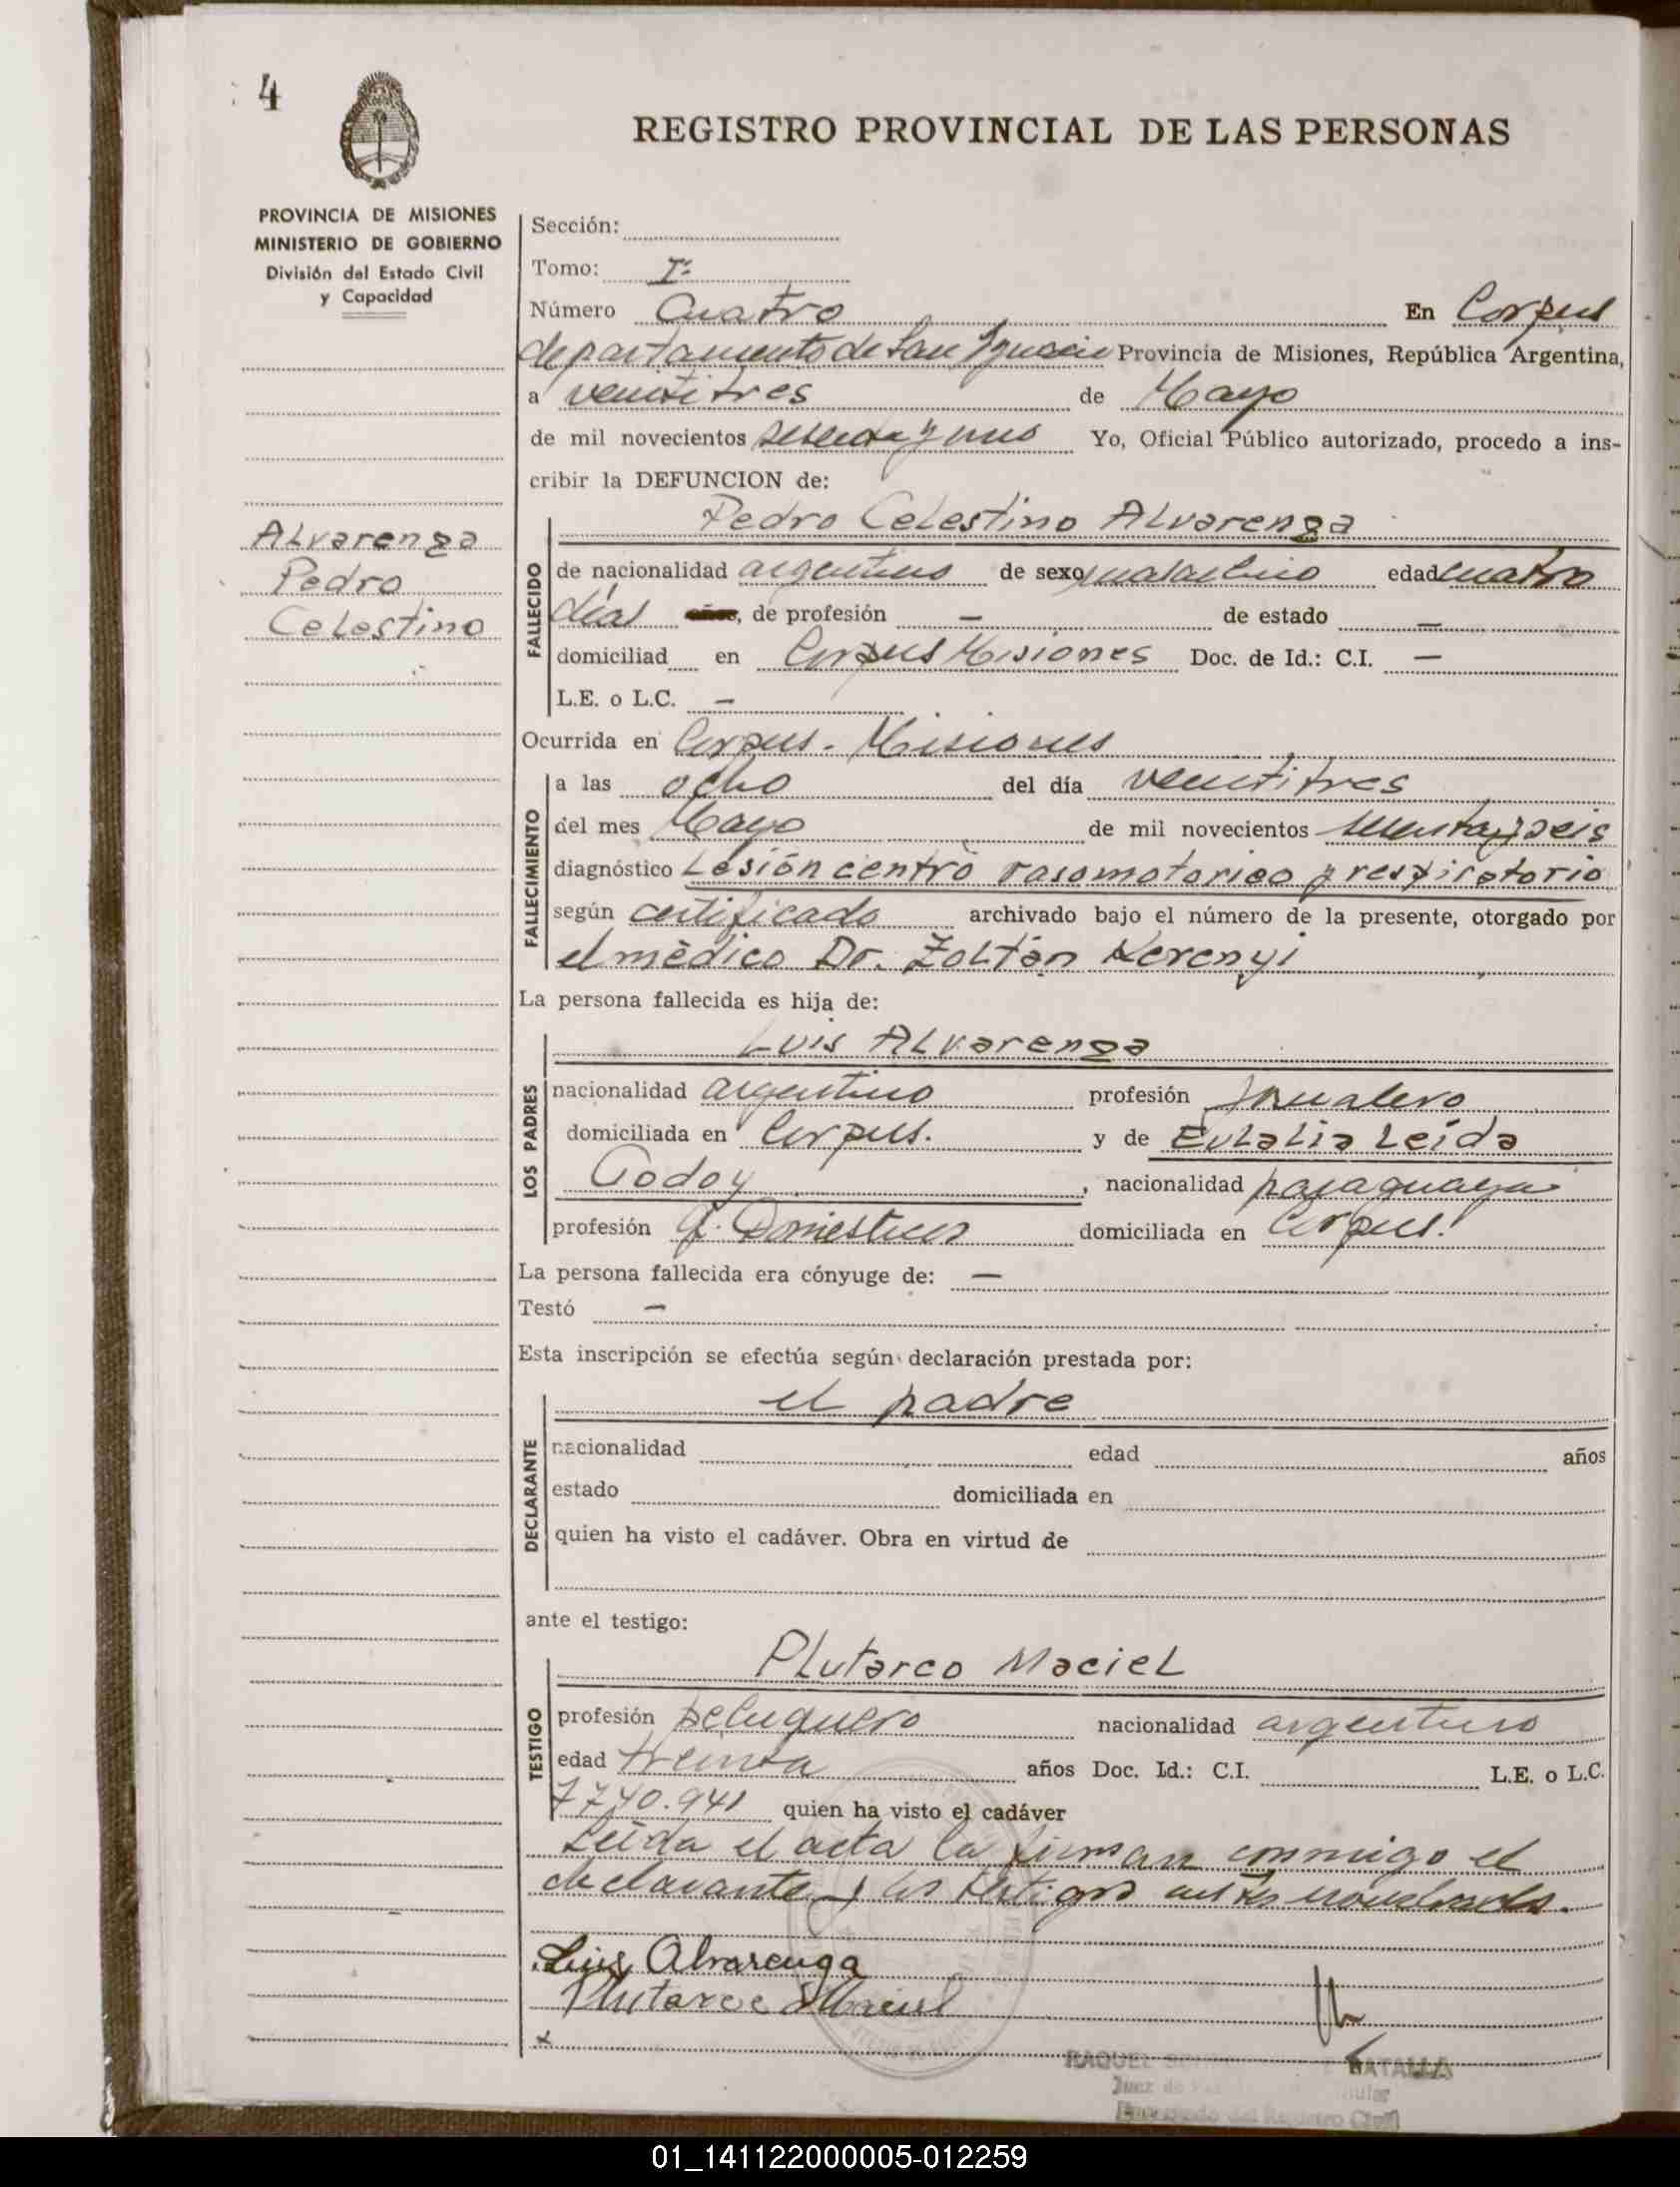 4
REGISTRO PROVINCIAL DE LAS PERSONAS
PROVINCIA DE MISIONES
MINISTERIO DE GOBIERNO
División del Estado Civil
y Capacidad
Alvarenga
Pedro
Celestino
Sección:
Tomo: Iº
Número Cuatro En Corpus
departamento de San Ignacio Provincia de Misiones, República Argentina,
a veintitres de Mayo
de mil novecientos y uno Yo, Oficial Público autorizado, procedo a ins-
cribir la DEFUNCION de:
Pedro Celestino Alvarenga
FALLECIDO
de nacionalidad argentino de sexo masculino edad cuatro
días años, de profesión — de estado —
domiciliad en Corpus Misiones Doc. de Id.: C.I. —
L.E. o L.C. —
Ocurrida en Corpus - Misiones
FALLECIMIENTO
a las ocho del día veintitres
del mes Mayo de mil novecientos
diagnóstico Lesión centro vasomotorico y respiratorio
según certificado archivado bajo el número de la presente, otorgado por
el mèdico Dr. Zoltán Kerenyi
La persona fallecida es hija de:
Luis Alvarenga
LOS PADRES
nacionalidad argentino profesión Jornalero
domiciliada en Corpus. y de Eulalia Leida
Godoy, nacionalidad paraguaya
profesión Q. Domesticos domiciliada en Corpus.
La persona fallecida era cónyuge de: —
Testó —
Esta inscripción se efectúa según declaración prestada por:
el padre
DECLARANTE
nacionalidad edad años
estado domiciliada en
quien ha visto el cadáver. Obra en virtud de
ante el testigo:
Plutarco Maciel
TESTIGO
profesión peluquero nacionalidad argentino
edad treinta años Doc. Id.: C.I. L.E. o L.C.
7740.941 quien ha visto el cadáver
Leida el acta la firman conmigo el
declarante y los testigos antes nombrados.
Luis Alvarenga
Plutarco Maciel
x
RAQUEL BATALLA
Juez de
del Registro Civil
01_141122000005-012259